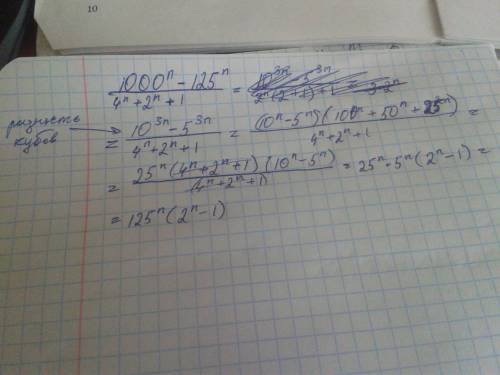 10
1000ⁿ − 125ⁿ / 4ⁿ + 2ⁿ + 1 =
разность кубов
= 10³ⁿ − 5³ⁿ / 4ⁿ + 2ⁿ + 1 = (10ⁿ − 5ⁿ)(100ⁿ + 50ⁿ + 25ⁿ) / 4ⁿ + 2ⁿ + 1 =
= 25ⁿ(4ⁿ + 2ⁿ + 1)(10ⁿ − 5ⁿ) / (4ⁿ + 2ⁿ + 1) = 25ⁿ · 5ⁿ(2ⁿ − 1) =
= 125ⁿ(2ⁿ − 1)